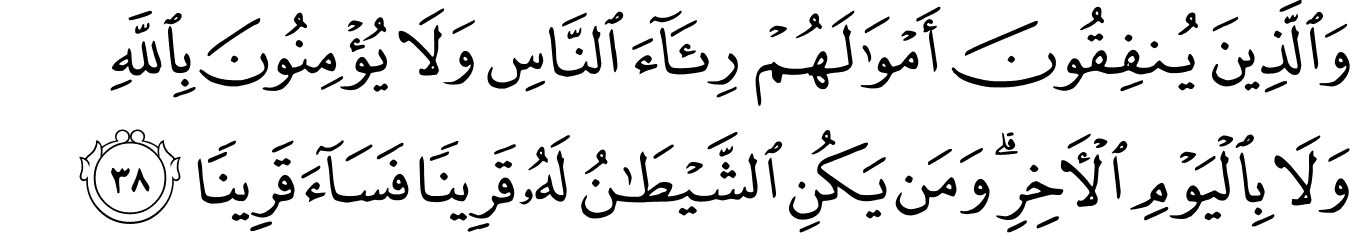 وَٱلَّذِينَ يُنفِقُونَ أَمْوَٰلَهُمْ رِئَآءَ ٱلنَّاسِ وَلَا يُؤْمِنُونَ بِٱللَّهِ
وَلَا بِٱلْيَوْمِ ٱلْأَخِرِ ۗ وَمَن يَكُنِ ٱلشَّيْطَٰنُ لَهُۥ قَرِينًا فَسَآءَ قَرِينًا ٣٨